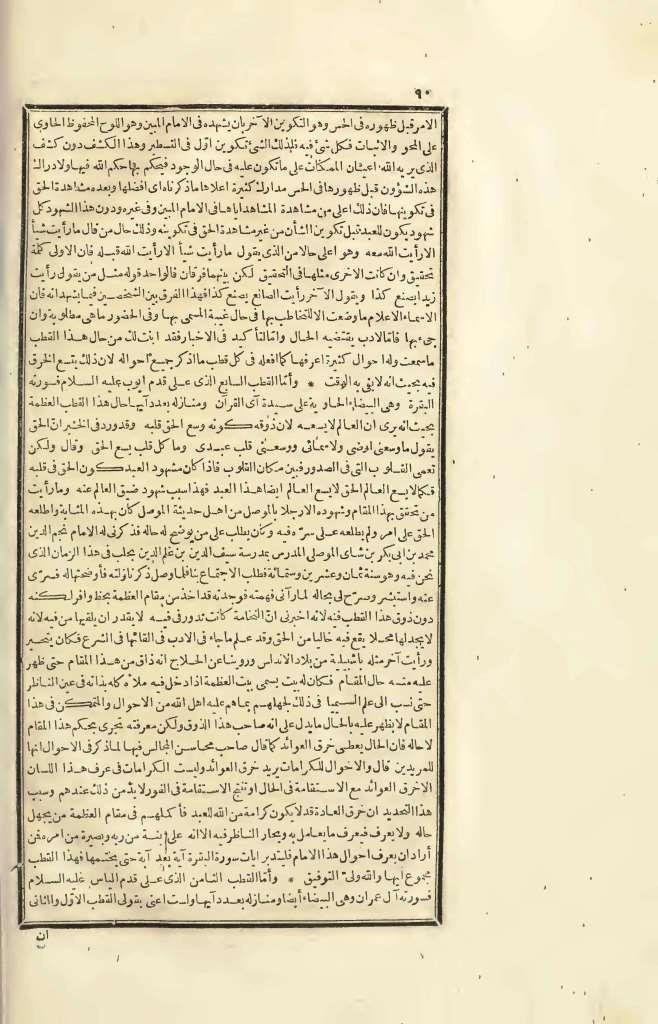 ٩٠
الامر قبل ظهوره فى الحس وهو التكوين الآخر بان يشهده فى الامام المبين وهو اللوح المحفوظ الحاوى
على المحو والاثبات فكل شئ فيه فلذلك الشئ تكوين اوّل فى التسطير وهذا الكشف دون كشف
الذى يريه الله اعيان الممكنات على ما تكون عليه فى حال الوجود فيحكم بها حكم الله فيها ولادراك
هذه الشؤون قبل ظهورها فى الحس مدارك كثيرة اعلاها ما ذكرناه اى افضلها وبعده مشاهدة الحق
فى تكوينها فان ذلك اعلى من مشاهدة المشاهد اياها فى الامام المبين وفى غيره ودون هذا الشهود كل
شهود يكون للعبد قبل تكوين الشأن من غير مشاهدة الحق فى تكوينه وذلك حال من قال ما رأيت شيأ
الا رأيت الله معه وهو اعلى حالا من الذى يقول ما رأيت شيأ الا رأيت الله قبله فان الاولى كلمة
تحقيق وان كانت الاخرى مثلها فى التحقيق لكن بينهما فرقان فالواحد قوله مثل من يقول رأيت
زيدا يصنع كذا ويقول الآخر رأيت الصانع يصنع كذا فهذا الفرق بين الشخصين فيما يشهدانه فان
الاسماء الاعلام ما وضعت الا للتخاطب بها فى حال غيبة المسمى بها وفى الحضور ما هى مطلوبة وان
جىء بها فامّا لادب يقتضيه الحال وامّا لتأكيد فى الاخبار فقد ابنت لك من حال هذا القطب
ما سمعت وله احوال كثيرة اعرفها كما افعله فى كل قطب ما اذكر جميع احواله لان ذلك يتسع الخرق
فيه بحيث انه لا يفى به الوقت * وأمّا القطب السابع الذى على قدم ايوب عليه السلام فسورته
البقرة وهى البيضاء الحاوية على سيدة آى القرآن ومنازله بعدد آيها حال هذا القطب العظمة
بحيث انه يرى ان العالم لا يسعه لان ذوقه كونه وسع الحق قلبه وقد ورد فى الخبر ان الحق
يقول ما وسعنى ارضى ولا سمائى ووسعنى قلب عبدى وما كل قلب يسع الحق وقال ولكن
تعمى القلوب التى فى الصدور فبين مكان القلوب فاذا كان مشهود العبد كون الحق فى قلبه
فكما لا يسع العالم الحق لا يسع العالم ايضا هذا العبد فهذا سبب شهود ضيق العالم عنه وما رأيت
من تحقق بهذا المقام وشهوده الا رجلا بالموصل من اهل حديثة الموصل كان بهذه المثابة واطلعه
الحق على امر ولم يطلعه على سرّه فيه وكان يطلب على من يوضح له حاله فذكرنى له الامام نجم الدين
محمد بن ابى بكر بن شاى الموصلى المدرس بمدرسة سيف الدين بن علم الدين بحلب فى هذا الزمان الذى
نحن فيه وهو سنة ثمان وعشرين وستمائة فطلب الاجتماع بنا فلما وصل ذكر نازلته فأوضحتها له فسرّى
عنه واستبشر وصرّح لى بحاله لما رآنى فهمته فوجدته قد اخذ من مقام العظمة بحظ وافر لكنه
دون ذوق هذا القطب فيه لانه اخبرنى انّ النخامة كانت تدور فى فيه لا يقدر ان يلقيها من فيه لانه
لا يجد لها محلا يقع فيه خاليا من الحق وقد علم ما جاء فى الادب فى القائها فى الشرع فكان يتحير
ورأيت آخر مثله باشبيلية من بلاد الاندلس وروينا عن الحلاج انه ذاق من هذا المقام حتى ظهر
عليه منه حال المقام فكان له بيت يسمى بيت العظمة اذا دخل فيه ملأه كله بذاته فى عين الناظر
حتى نسب الى علم السيميا فى ذلك لجهلهم بما هم عليه اهل الله من الاحوال والمتمكن فى هذا
المقام لا يظهر عليه بالحال ما يدل على انه صاحب هذا الذوق ولكن معرفته تجرى بحكم هذا المقام
لا حاله فان الحال يعطى خرق العوائد كما قال صاحب محاسن المجالس فيها لما ذكر فى الاحوال انها
للمريدين قال والاحوال للكرامات يريد خرق العوائد وليست الكرامات فى عرف هذا اللسان
الا خرق العوائد مع الاستقامة فى الحال او تنتج الاستقامة فى الفور لا بدّ من ذلك عندهم وسبب
هذا التحديد ان خرق العادة قد لا يكون كرامة من الله للعبد فأكملهم فى مقام العظمة من يجهل
حاله ولا يعرف فيعرف ما يعامل به ويحار الناظر فيه الا انه على بينة من ربه وبصيرة من امره فمن
أراد ان يعرف احوال هذا الامام فليتدبر ايات سورة البقرة آية بعد آية حتى يختمها فهذا القطب
مجموع آيها والله ولىّ التوفيق * وأمّا القطب الثامن الذى على قدم الياس عليه السلام
فسورته آل عمران وهى البيضاء ايضا ومنازله بعدد آيها ولست اعنى بقولى القطب الاوّل والثانى
ان